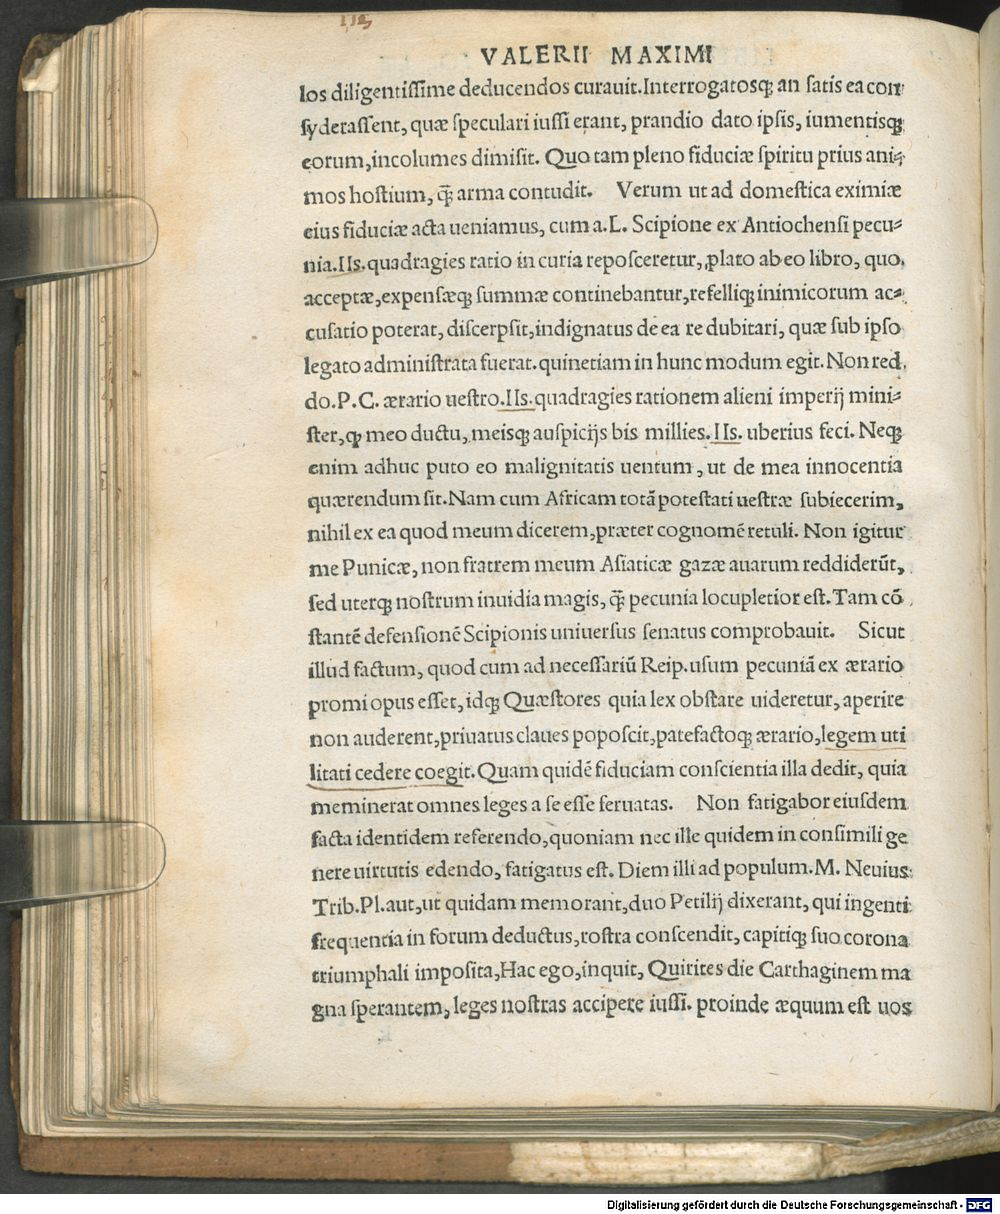 113
VALERII MAXIMI
los diligentissime deducendos curauit.Interrogatosq; an satis ea con-
syderassent, quæ speculari iussi erant, prandio dato ipsis, iumentisq;
eorum,incolumes dimisit. Quo tam pleno fiduciæ spiritu prius ani-
mos hostium, q̃ arma contudit. Verum ut ad domestica eximiæ
eius fiduciæ acta ueniamus, cum a.L. Scipione ex Antiochensi pecu-
nia.IIs.quadragies ratio in curia reposceretur,,plato ab eo libro, quo
acceptæ,expensæq; summæ continebantur,refelliq; inimicorum ac-
cusatio poterat, discerpsit,indignatus de ea re dubitari, quæ sub ipso
legato administrata fuerat.quinetiam in hunc modum egit.Non red
do.P.C. ærario uestro.IIs.quadragies rationem alieni imperij mini-
ster,ꝙ meo ductu,meisq; auspicijs bis millies.IIs. uberius feci. Neq;
enim adhuc puto eo malignitatis uentum, ut de mea innocentia
quærendum sit.Nam cum Africam totã potestati uestræ subiecerim,
nihil ex ea quod meum dicerem,præter cognomẽ retuli. Non igitur
me Punicæ, non fratrem meum Asiaticæ gazæ auarum reddiderũt,
sed uterq; nostrum inuidia magis, q̃ pecunia locupletior est.Tam cõ
stantẽ defensionẽ Scipionis uniuersus senatus comprobauit. Sicut
illud factum, quod cum ad necessariũ Reip.usum pecuniã ex ærario
promi opus esset, idq; Quæstores quia lex obstare uideretur, aperire
non auderent,priuatus claues poposcit,patefactoq; ærario,legem uti
litati cedere coegit.Quam quidẽ fiduciam conscientia illa dedit, quia
meminerat omnes leges a se esse seruatas. Non fatigabor eiusdem
facta identidem referendo,quoniam nec ille quidem in consimili ge
nere uirtutis edendo, fatigatus est. Diem illi ad populum.M. Neuius
Trib.Pl.aut,ut quidam memorant,duo Petilij dixerant, qui ingenti
frequentia in forum deductus,rostra conscendit, capitiq; suo corona
triumphali imposita,Hac ego,inquit, Quirites die Carthaginem ma
gna sperantem, leges nostras accipere iussi. proinde æquum est uos
Digitalisierung gefördert durch die Deutsche Forschungsgemeinschaft - DFG